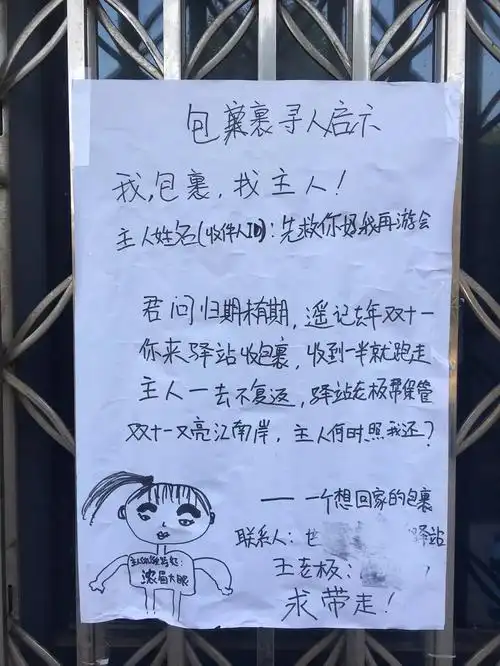 包裹寻人启示
我,包裹,找主人!
主人姓名(收件人ID):先救你妈我再游会
君问归期未有期,遥记去年双十一
你来驿站收包裹,收到一半就跑走
主人一去不复返,驿站老板帮保管
双十一又亮江南岸,主人何时照我还?
——一个想回家的包裹
联系人: 驿站
王老板:
求带走!
主人
浓眉大眼